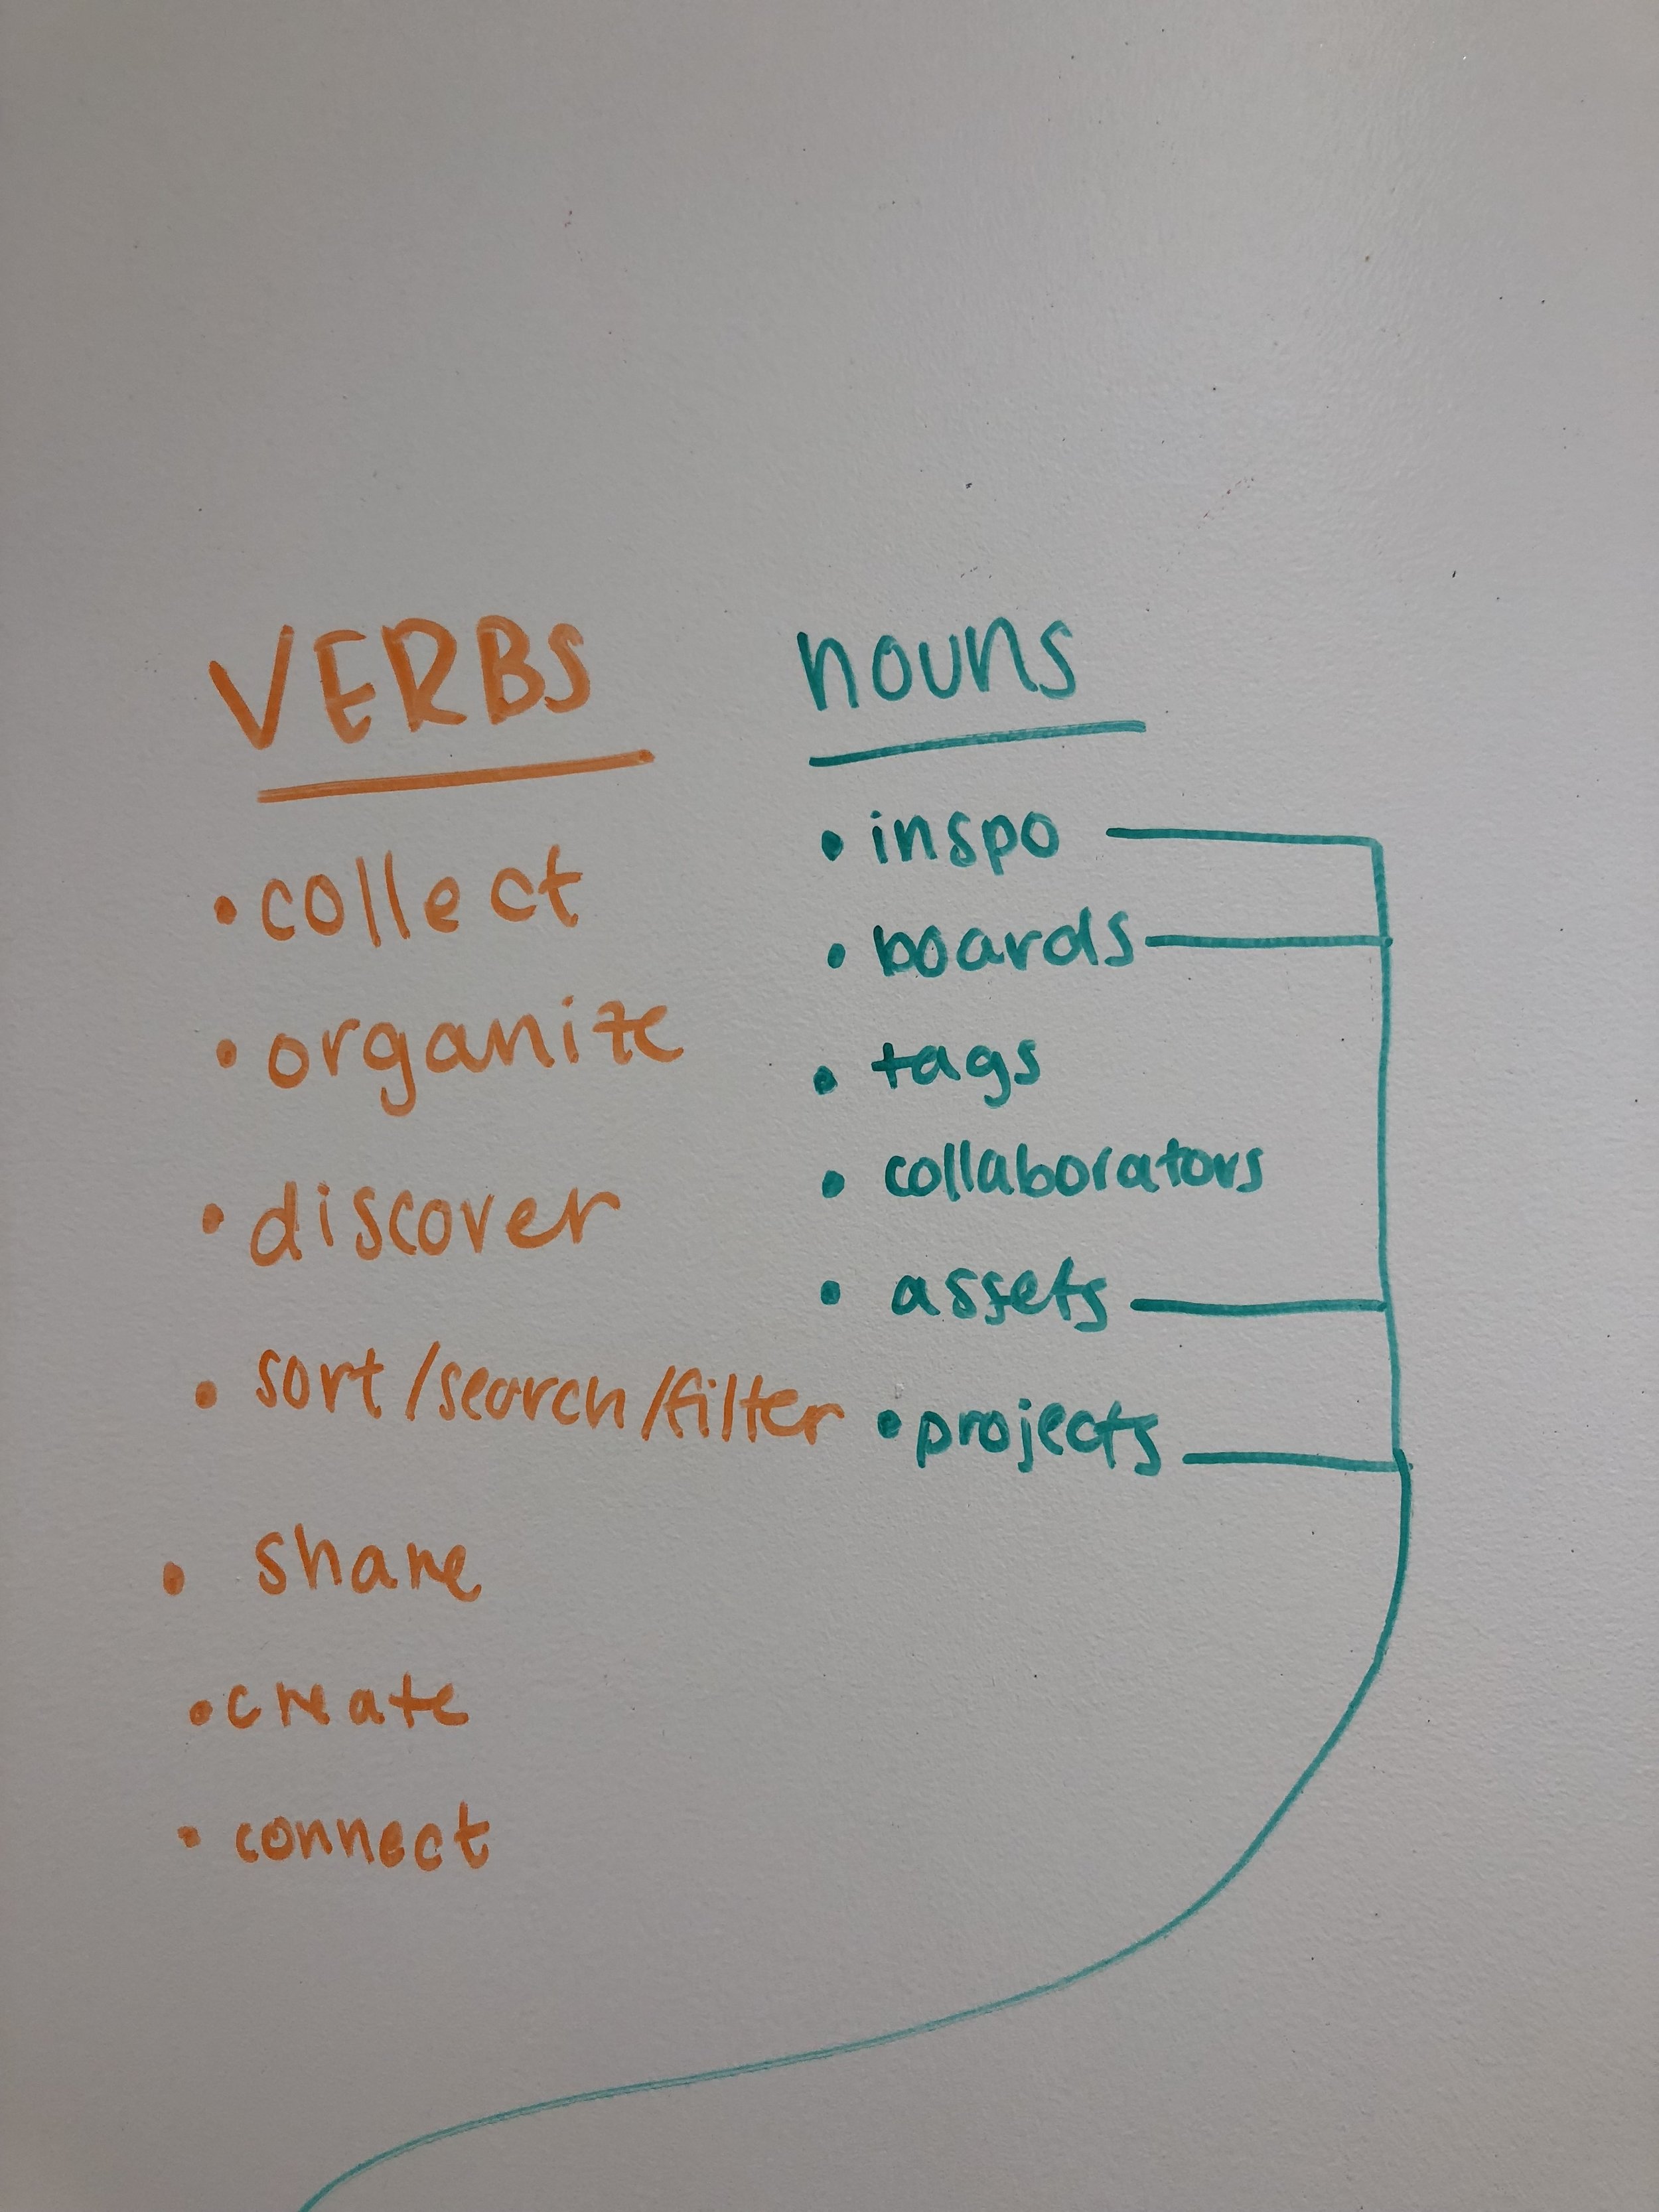 VERBS
• collect
• organize
• discover
• sort/search/filter
• share
• create
• connect
nouns
• inspo
• boards
• tags
• collaborators
• assets
• projects